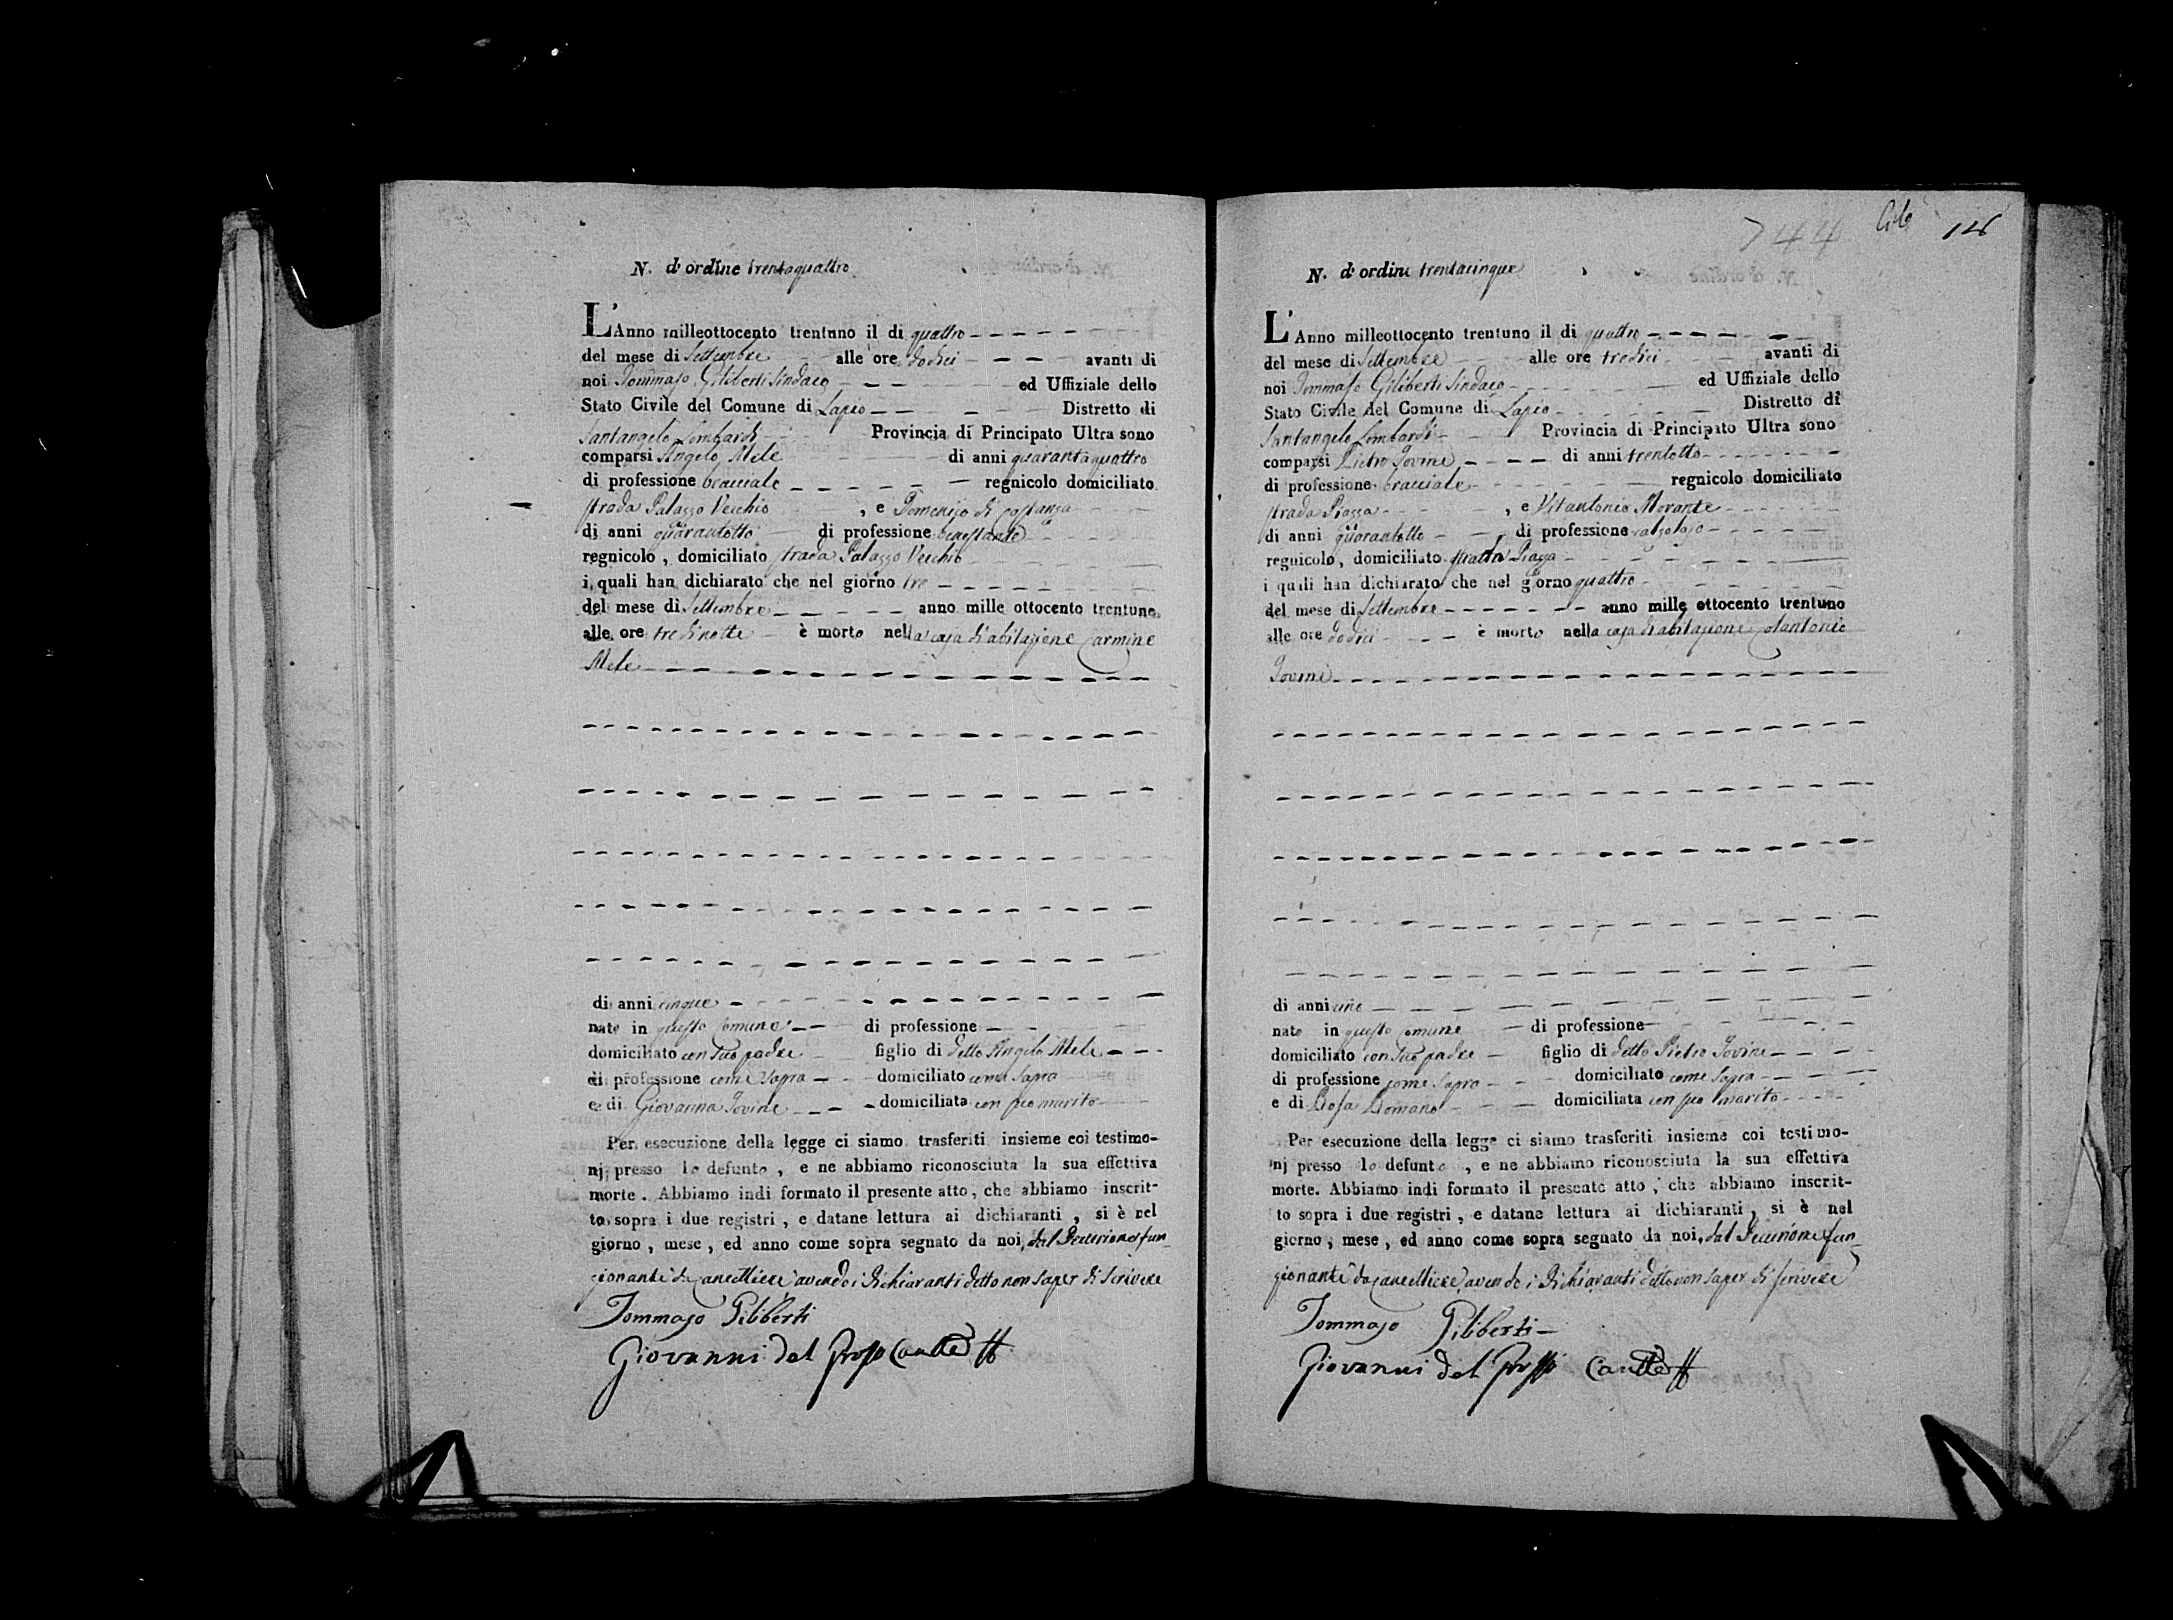 N. d'ordine trentaquattro
L'Anno milleottocento trentuno il di quattro
del mese di Settembre alle ore dodici avanti di
noi Tommaso Giliberti Sindaco ed Uffiziale dello
Stato Civile del Comune di Lapio Distretto di
Santangelo Lombardi Provincia di Principato Ultra sono
comparsi Angelo Mele di anni quarantaquattro
di professione bracciale regnicolo domiciliato
strada Palazzo Vecchio , e Domenico di Costanza
di anni quarantotto di professione benestante
regnicolo, domiciliato strada Palazzo Vecchio
i quali han dichiarato che nel giorno tre
del mese di Settembre anno mille ottocento trentuno
alle ore tre di notte è morto nella casa di abitazione Carmine
Mele
di anni cinque
nato in questo Comune di professione
domiciliato con suo padre figlio di detto Angelo Mele
di professione come sopra domiciliato come sopra
e di Giovanna Iovine domiciliata con suo marito
Per esecuzione della legge ci siamo trasferiti insieme coi testimo-
nj presso lo defunto, e ne abbiamo riconosciuta la sua effettiva
morte. Abbiamo indi formato il presente atto, che abbiamo inscrit-
to sopra i due registri, e datane lettura ai dichiaranti, si è nel
giorno, mese, ed anno come sopra segnato da noi, dal Decurione fun-
zionante da Cancelliere avendo i dichiaranti detto non saper di scrivere
Tommaso Giliberti
Giovanni del Grosso
744 126
N. d'ordine trentacinque
L'Anno milleottocento trentuno il di quattro
del mese di Settembre alle ore tredici avanti di
noi Tommaso Giliberti Sindaco ed Uffiziale dello
Stato Civile del Comune di Lapio Distretto di
Santangelo Lombardi Provincia di Principato Ultra sono
comparsi Pietro Iovine di anni trentotto
di professione bracciale regnicolo domiciliato
strada Piazza , e Vitantonio Morante
di anni quarantotto di professione calzolajo
regnicolo, domiciliato strada Piazza
i quali han dichiarato che nel giorno quattro
del mese di Settembre anno mille ottocento trentuno
alle ore dodici è morto nella casa di abitazione Colantonio
Iovine
di anni uno
nato in questo comune di professione
domiciliato con suo padre figlio di detto Pietro Iovine
di professione come sopra domiciliato come sopra
e di Rosa Romano domiciliata con suo marito
Per esecuzione della legge ci siamo trasferiti insieme coi testimo-
nj presso lo defunto, e ne abbiamo riconosciuta la sua effettiva
morte. Abbiamo indi formato il presente atto, che abbiamo inscrit-
to sopra i due registri, e datane lettura ai dichiaranti, si è nel
giorno, mese, ed anno come sopra segnato da noi, dal Decurione fun-
zionante da Cancelliere, avendo i dichiaranti detto non saper di scrivere
Tommaso Giliberti
Giovanni del Grosso